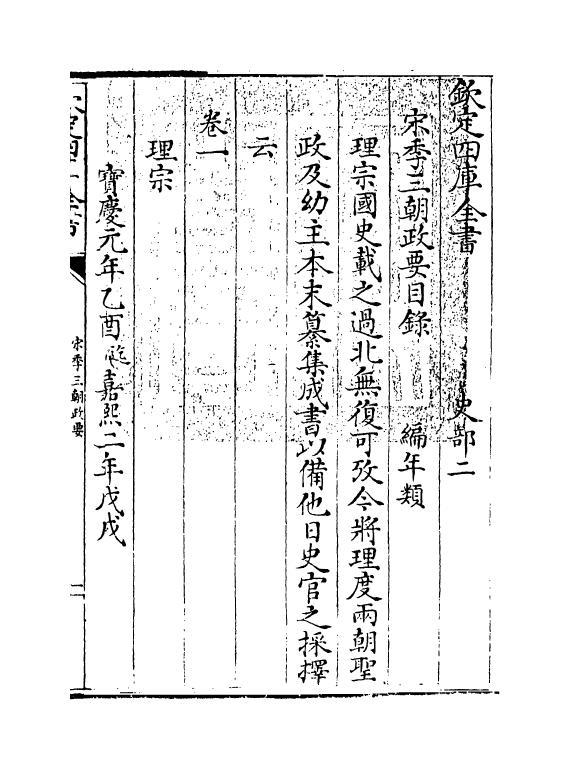 欽定四庫全書 史部二
宋季三朝政要目録 編年類
理宗國史載之過北無復可攷今將理度兩朝聖
政及幼主本末纂集成書以備他日史官之採擇
云
卷一
理宗
寶慶元年乙酉迄嘉熙二年戊戌
宋季三朝政要